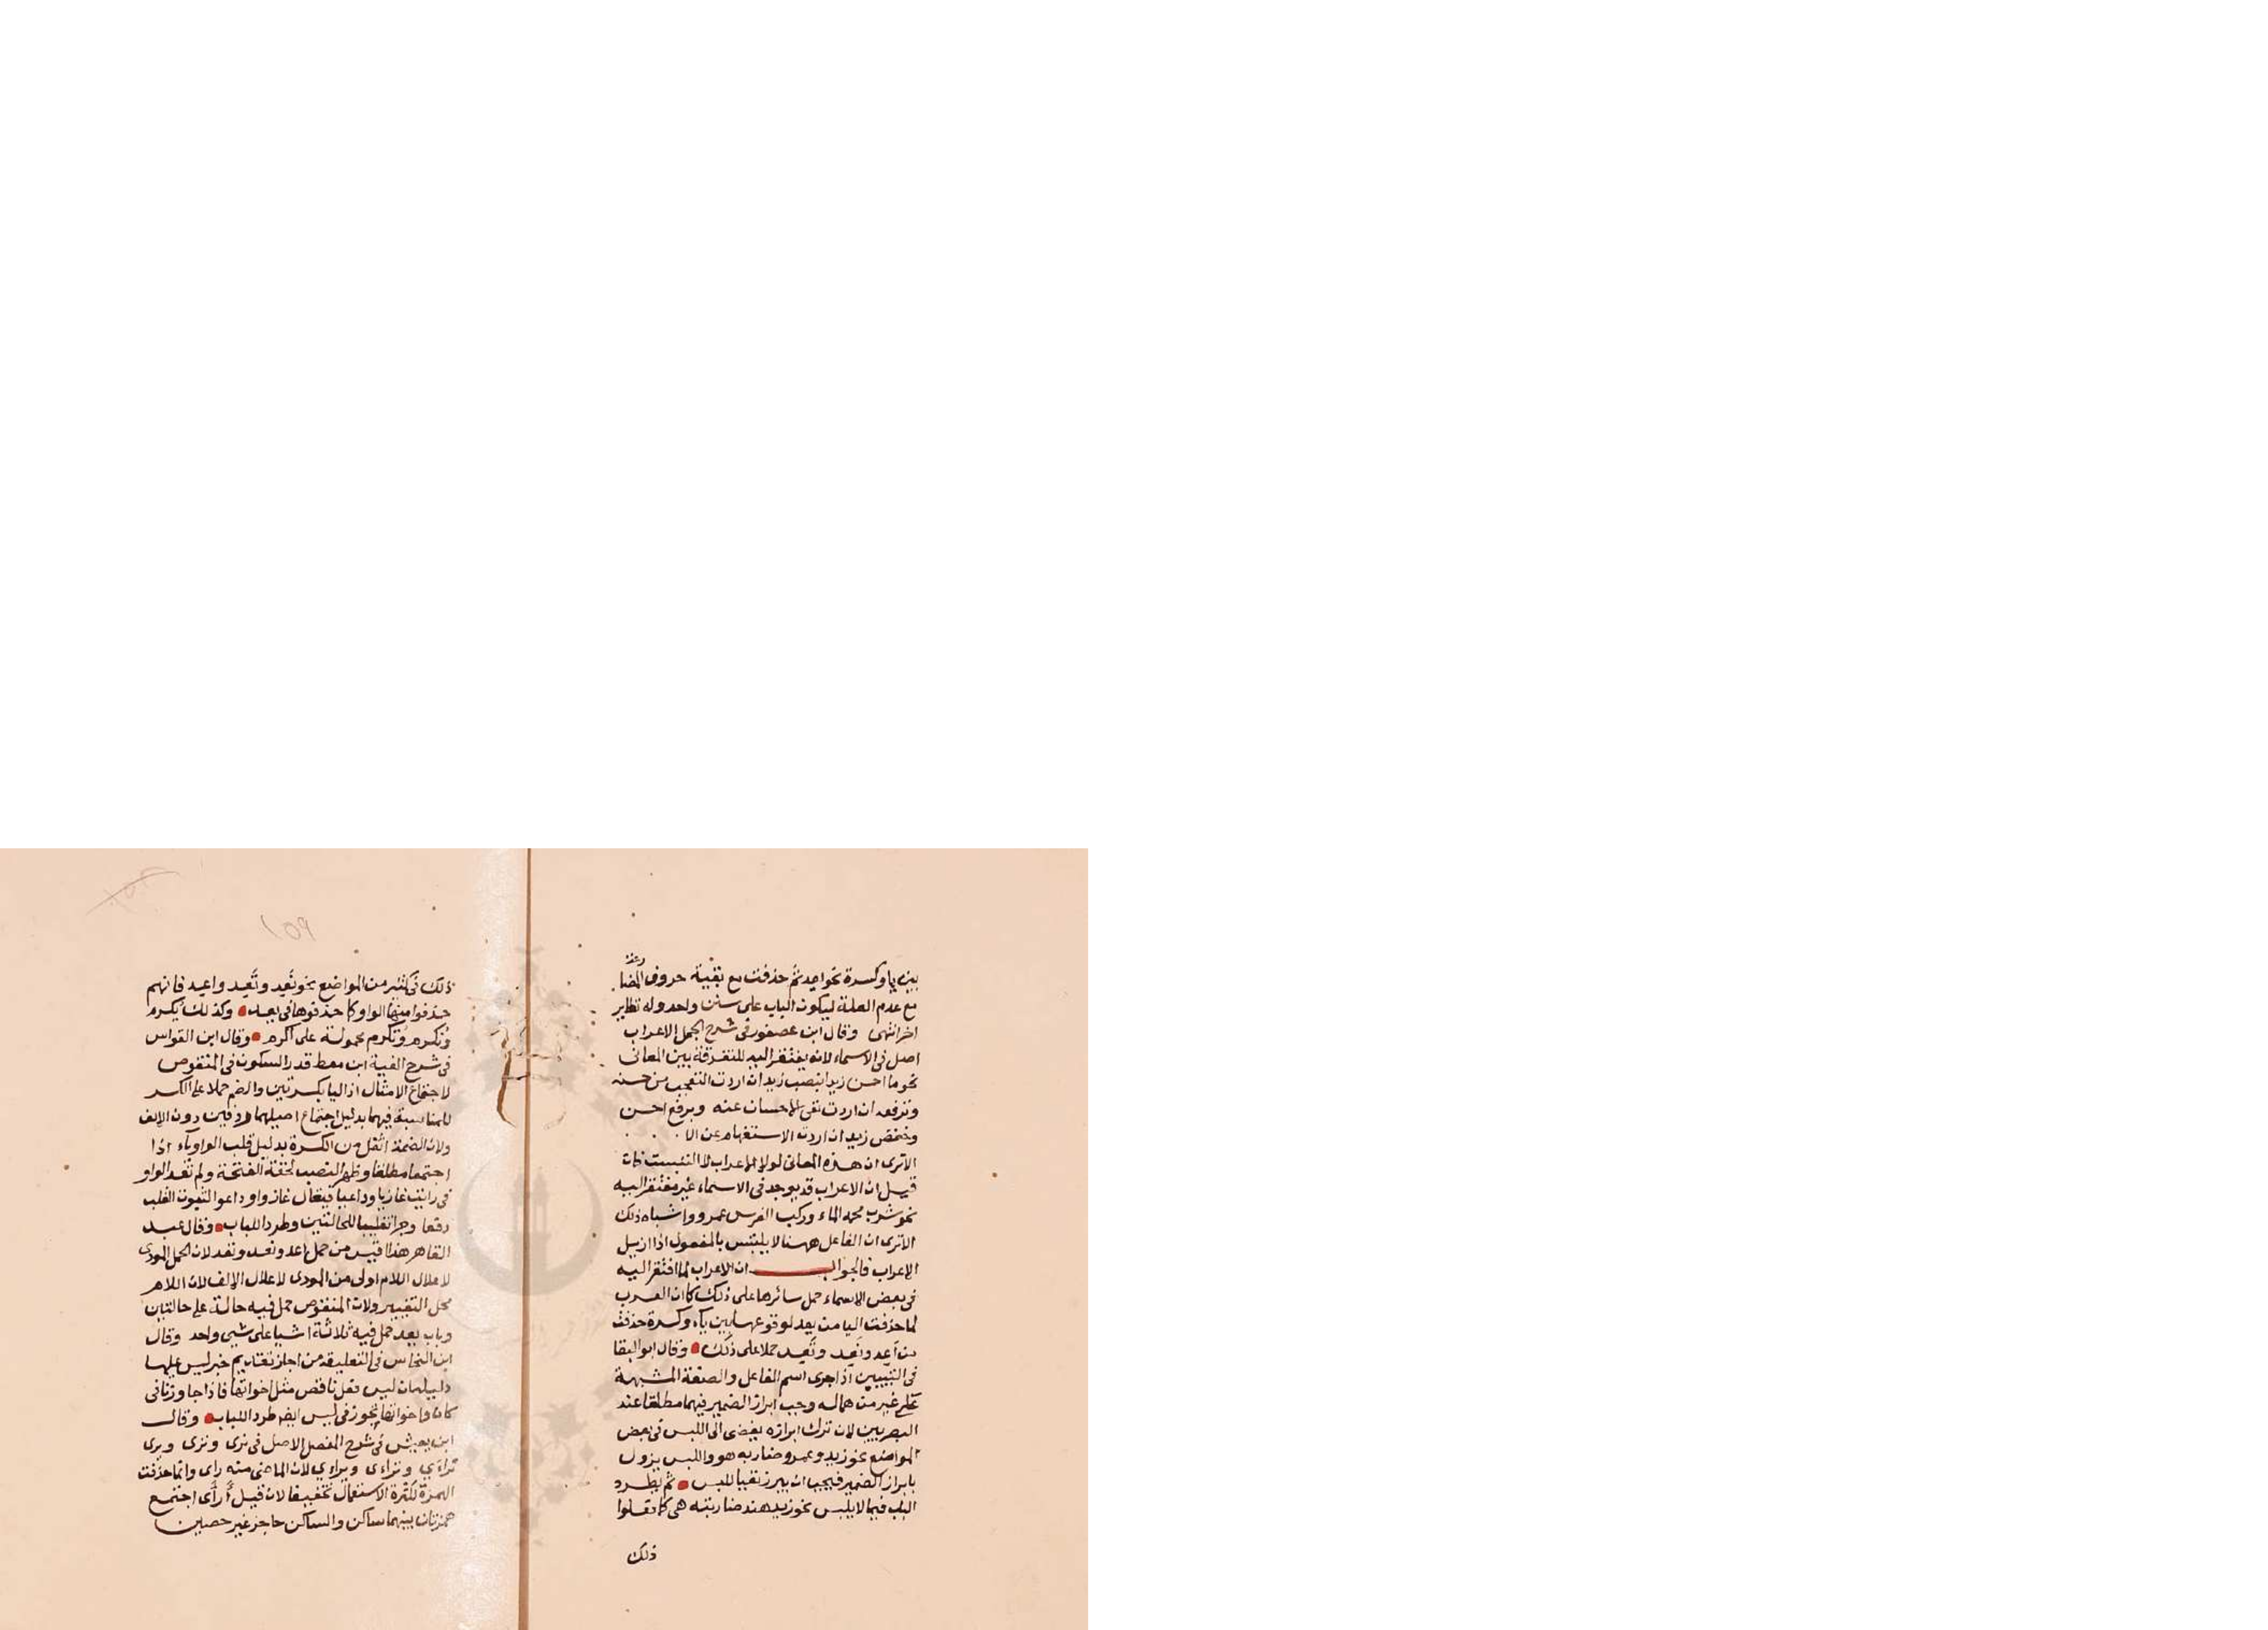 بين ياء وكسرة نحو يعد ثم حذفت مع بقية حروف المضا
رعة
مع عدم العلة ليكون الباب على سنن واحد وله نظاير
اخر انتهى وقال ابن عصفور فى شرح الجمل الاعراب
اصل فى الاسماء لانه يفتقر اليه للتفرقة بين المعانى
نحو ما احسن زيدا بنصب زيد ان اردت التعجب من حسنه
وترفعه ان اردت نفى الاحسان عنه وبرفع احسن
وخفض زيد ان اردت الاستفهام عن الا
الا ترى ان هذه المعانى لولا الاعراب لالتبست فان
قيل ان الاعراب قد يوجد فى الاسماء غير مفتقر اليه
نحو شرب محمد الماء وركب الفرس عمرو واشباه ذلك
الا ترى ان الفاعل ههنا لا يلتبس بالمفعول اذا ازيل
الاعراب فالجواب ان الاعراب لما افتقر اليه
فى بعض الاسماء حمل سائرها على ذلك كما ان العرب
لما حذفت اليا من يعد لوقوعها بين ياء وكسرة حذفت
من أعد ونعد وتعد حملا على ذلك وقال ابو البقا
فى التبيين اذا جرى اسم الفاعل والصفة المشبهة
على غير من هما له وجب ابراز الضمير فيهما مطلقا عند
البصريين لان ترك ابرازه يفضى الى اللبس فى بعض
المواضع نحو زيد وعمرو ضاربه هو واللبس يزول
بابراز الضمير فيجب ان يبرز نفيا للبس ثم يطرد
الباب فيما لا يلبس نحو زيد هند ضاربته هى كما فعلوا
ذلك
١٥٩
ذلك فى كثير من المواضع نحو نعد وتعد واعد فانهم
حذفوا منها الواو كما حذفوها فى يعد وكذلك يكرم
ونكرم وتكرم محمولة على أكرم وقال ابن القواس
فى شرح الفية ابن معط قدر السكون فى المنقوص
لاجتماع الامثال اذ اليا بكسرتين والضم حملا على الكسر
للمناسبة فيهما بدليل اجتماع اصيلهما ردفين دون الالف
ولان الضمة اثقل من الكسرة بدليل قلب الواو ياء اذا
اجتمعا مطلقا وظهر النصب لخفة الفتحة ولم تعد الواو
فى رايت غازيا وداعيا فيقال غازوا وداعوا لثبوت القلب
رفعا وجرا تغليبا للحالتين وطردا للباب وقال عبد
القاهر هذا اقيس من حمل اعد وتعد ونعد لان الحمل المودى
لاعلال اللام اولى من المودى لاعلال الالف لان اللام
محل التغيير ولان المنقوص حمل فيه حالة على حالتين
وباب يعد حمل فيه ثلاثة اشيا على شىء واحد وقال
ابن النحاس فى التعليقة من اجاز تقديم خبر ليس عليها
دليله ان ليس فعل ناقص مثل اخواتها فاذا جاوزنا فى
كان واخواتها يجوز فى ليس ايضا طردا للباب وقال
ابن يعيش فى شرح المفصل الاصل فى ترى ونرى ويرى
تراءى ونراءى ويراءى لان الماضى منه راى وانما حذفت
الهمزة لكثرة الاستعمال تخفيفا لان قيل أرأى اجتمع
همزتان بينهما ساكن والساكن حاجز غير حصين